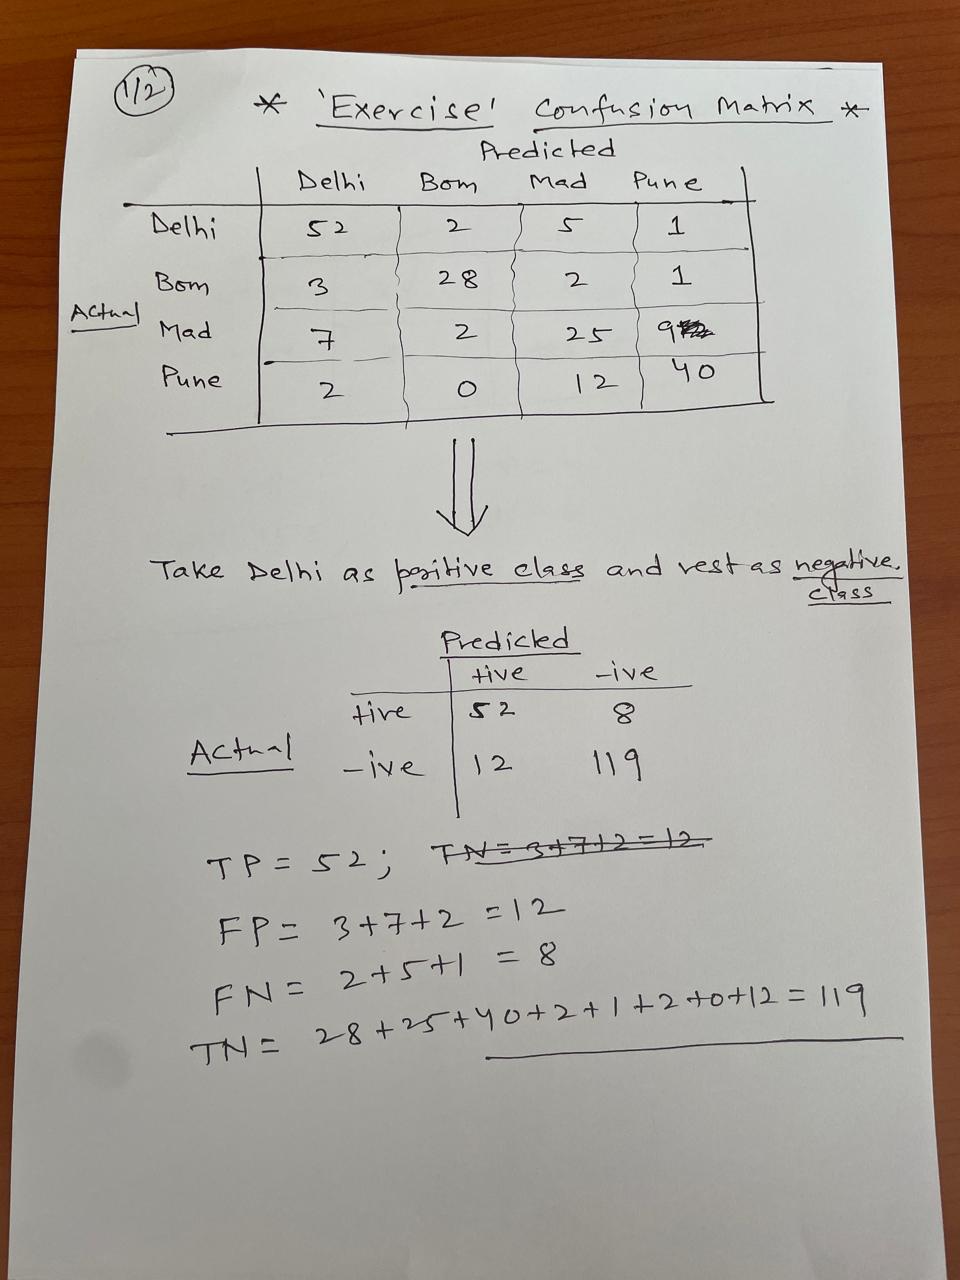 1/2
* 'Exercise' Confusion Matrix *
Predicted
Delhi Bom Mad Pune
Delhi 52 2 5 1
Bom 3 28 2 1
Actual
Mad 7 2 25 9
Pune 2 0 12 40
Take Delhi as positive class and rest as negative.
class
Predicted
+ive -ive
+ive 52 8
Actual
-ive 12 119
TP = 52; TN = 3+7+2 = 12
FP = 3+7+2 = 12
FN = 2+5+1 = 8
TN = 28+25+40+2+1+2+0+12 = 119